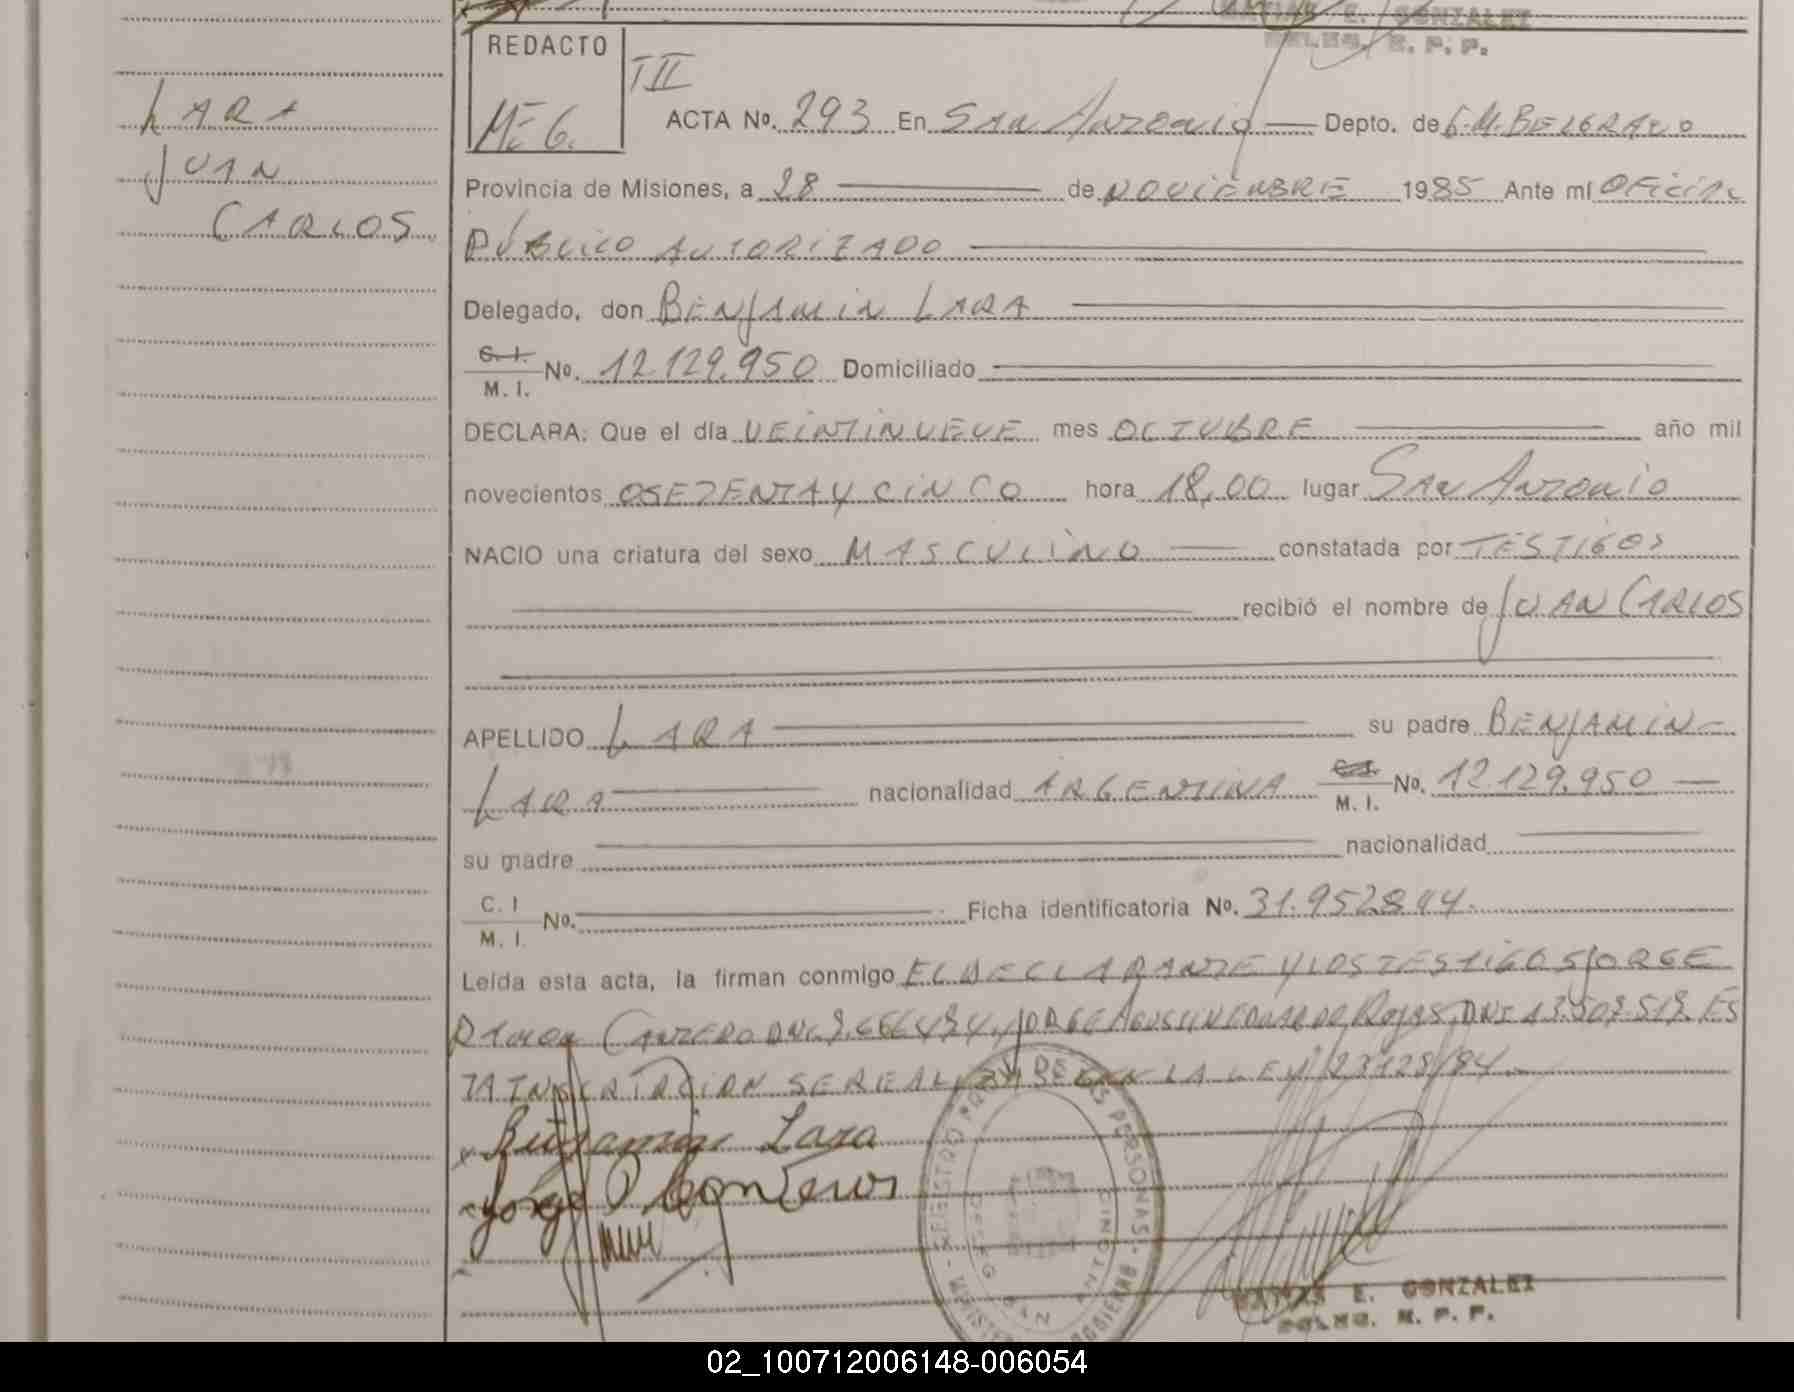 GONZALEZ
R. P. P.
REDACTO
M E G.
T II
LARA
JUAN
CARLOS
ACTA Nº. 293 En San Antonio Depto. de G. M. BELGRANO
Provincia de Misiones, a 28 de NOVIEMBRE 1985 Ante mí OFICIAL
PUBLICO AUTORIZADO
Delegado, don BENJAMIN LARA
C. I.
M. I. No. 12.129.950 Domiciliado
DECLARA: Que el día VEINTINUEVE mes OCTUBRE año mil
novecientos OSETENTA Y CINCO hora 18,00 lugar San Antonio
NACIO una criatura del sexo MASCULINO constatada por TESTIGOS
recibió el nombre de JUAN CARLOS
APELLIDO LARA su padre BENJAMIN
LARA nacionalidad ARGENTINA C.I. M. I. No. 12.129.950
su madre nacionalidad
C. I
M. I. No. Ficha identificatoria No. 31.952.844.
Leída esta acta, la firman conmigo EL DECLARANTE Y LOS TESTIGOS JORGE
RAMON CANTERO DNI JORGE AGUSTIN EDUARDO ROJAS DNI 13.507.517. ES
TA INSCRIPCION SE REALIZA SEGUN LA LEY 23128/84.
x Benjamin Lara
x Jorge R Canteros
REGISTRO PROV. DE LAS PERSONAS
SAN ANTONIO
MATIAS E. GONZALEZ
R. P. P.
02_100712006148-006054